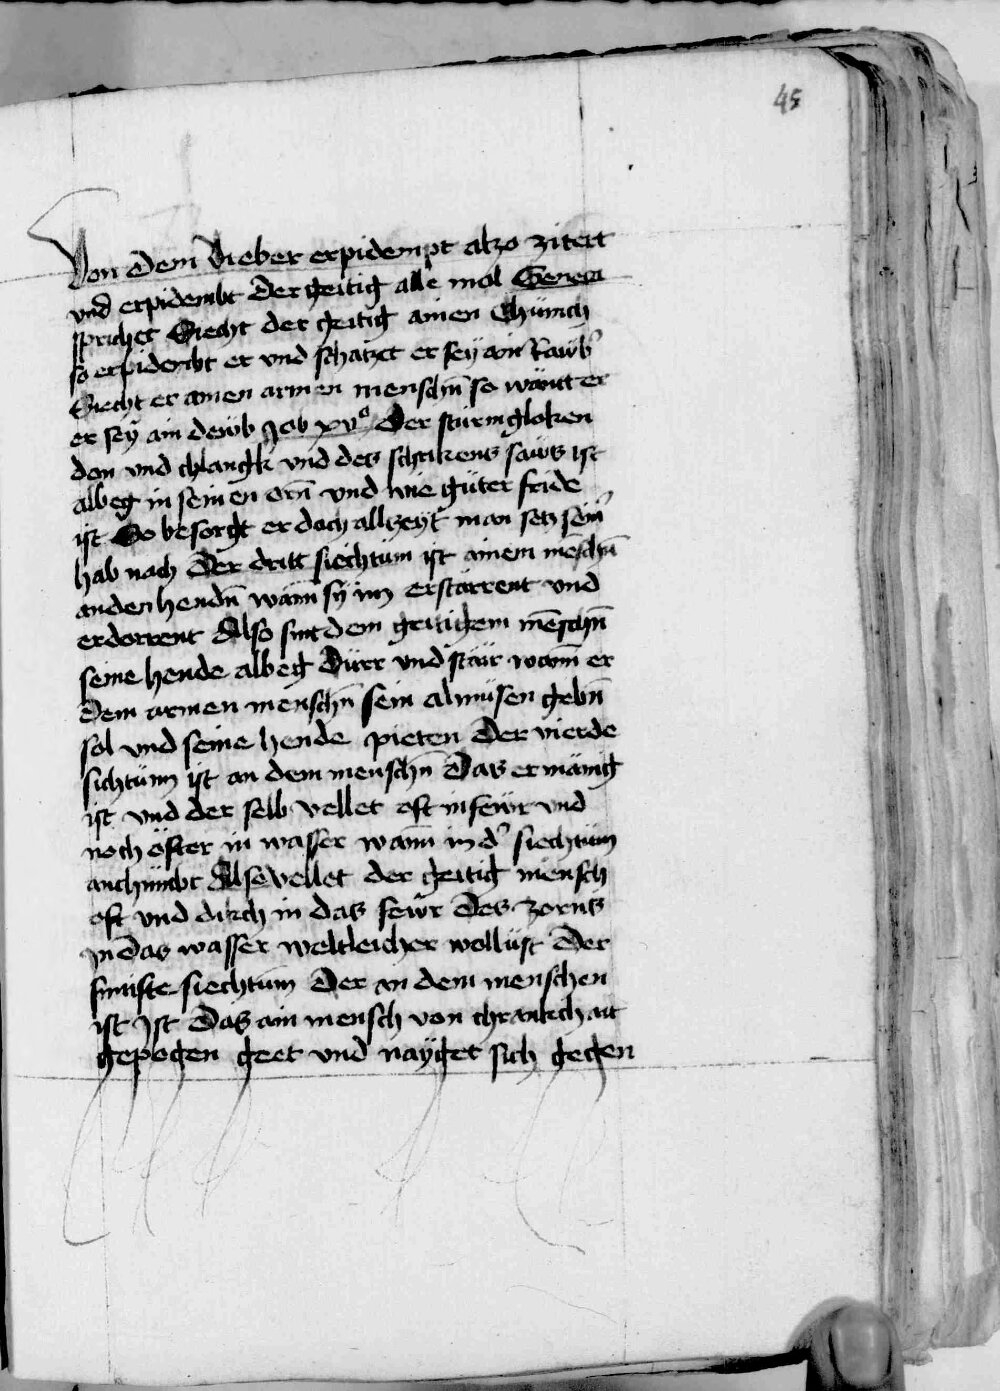 45
Von dem vieber erpidempt alzo zitert
vnd erpidembt der geitig alle mol Seneca
sprichet Siecht der geitig ainen Chünich
so erpidembt er vnd schatzet er seÿ ain Rawb̾
Siecht er ainen armen menschn̄ so wäntt er
er seÿ ain dewb Job xvº Der sturmgloken
don vnd chlangk vnd des schrikens saws ist
albeg in seinen orn̄ vnd wie güter fride
ist So besorgt er doch allzeÿt man setz sein̾
hab nach Der dritt siechtum ist ainem meschn̄
an den hendn̄ wann̄ sÿ im erstarrent vnd
erdorrent Also sint dem geitigem mēschn̄
seine hende albeg Dürr vnd starr wann̄ er
dem armen menschn̄ sein almüsen gebn̄
sol vnd seine hende pieten Der vierde
sichtüm ist an dem menschn̄ Das er mänig
ist vnd der selb vellet oft in fewr vnd
noch öfter in wasser wann̄ in d̾ siechtüm
anchümbt Also vellet der geitig mensch
oft vnd dikch in das fewr des zorns
in das wasser weltleicher wollüst Der
fimfte siechtum Der an dem menschen
ist Ist Das ain mensch von chrankchait
gepogen geet vnd nayget sich gegen